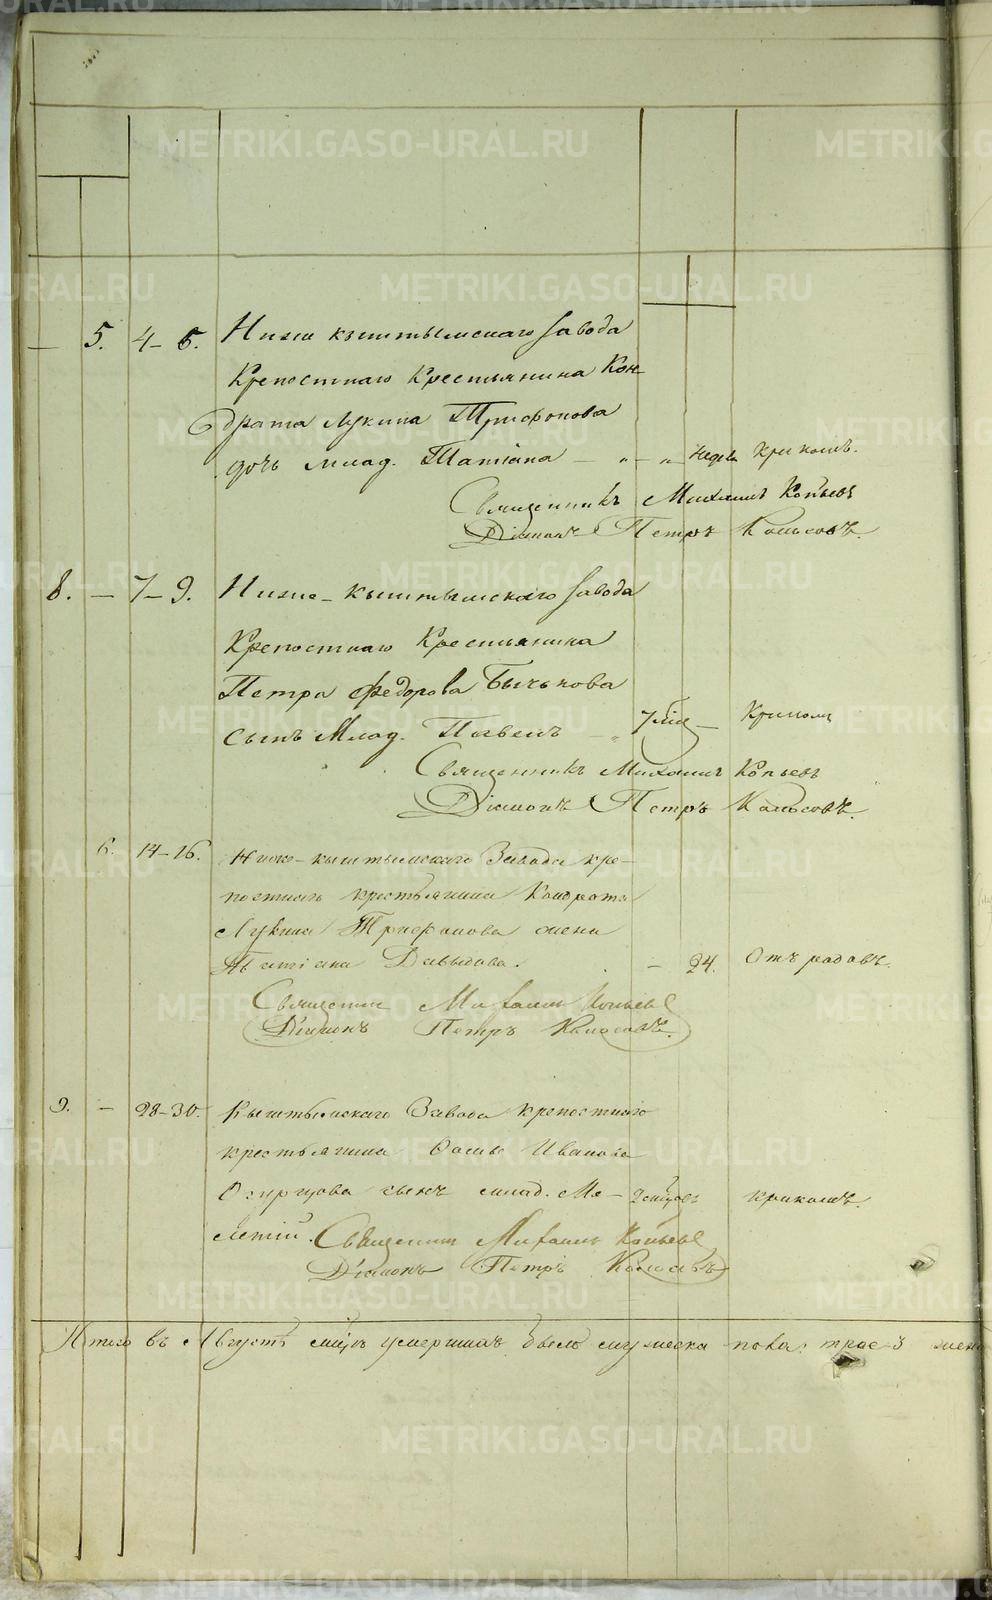 METRIKI.GASO-URAL.RU
— 5. 4–6. Ниже кыштымскаго завода
Крепостнаго Крестьянина Кон-
драта Лукина Трифонова
дочь млад. Татiана — „ — „ недел Крикомъ.
Священникъ Михаилъ Копьевъ
Дiаконъ Петръ Колосовъ.
8. — 7–9. Ниже-кыштымскаго завода
Крепостнаго Крестьянина
Петра Федорова Бычкова
сынъ Млад. — „ 7 мѣс — Крикомъ
Священникъ Михаилъ Копьевъ
Дiаконъ Петръ Колосовъ.
6. 14–16. Ниже-кыштымскаго Завода кре-
постнаго крестьянина Кондрата
Лукина Трифонова жена
Татiана Давыдова. — 24. Отъ родовъ.
Священникъ Михаилъ Копьевъ
Дiаконъ Петръ Колосовъ.
9. — 28–30. Кыштымскаго Завода крепостнаго
крестьянина Иванова
сынъ млад. Ме- 2 крикомъ.
летiй. Священникъ Михаилъ Копьевъ
Дiаконъ Петръ Колосовъ
Итого въ Августѣ умершихъ было мужеска пола трое 3 женс